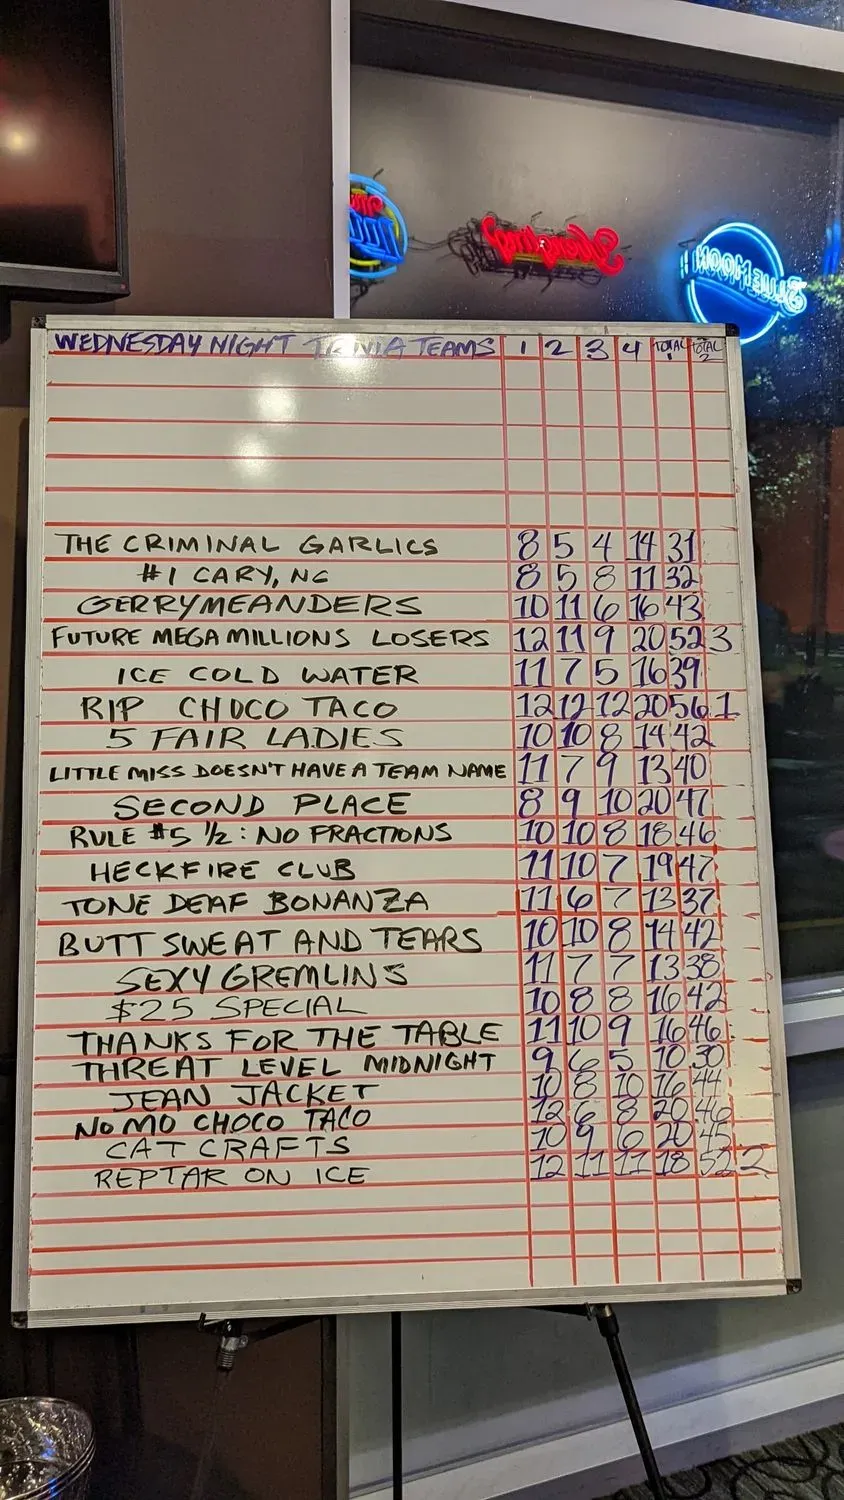 WEDNESDAY NIGHT TRIVIA TEAMS 1 2 3 4 TOTAL 1 TOTAL 2
THE CRIMINAL GARLICS 8 5 4 14 31
#1 CARY, NC 8 5 8 11 32
GERRYMEANDERS 10 11 6 16 43
FUTURE MEGA MILLIONS LOSERS 12 11 9 20 52 3
ICE COLD WATER 11 7 5 16 39
RIP CHOCO TACO 12 12 12 20 56 1
5 FAIR LADIES 10 10 8 14 42
LITTLE MISS DOESN'T HAVE A TEAM NAME 11 7 9 13 40
SECOND PLACE 8 9 10 20 47
RULE #5 1/2: NO FRACTIONS 10 10 8 18 46
HECKFIRE CLUB 11 10 7 19 47
TONE DEAF BONANZA 11 6 7 13 37
BUTT SWEAT AND TEARS 10 10 8 14 42
SEXY GREMLINS 11 7 7 13 38
$25 SPECIAL 10 8 8 16 42
THANKS FOR THE TABLE 11 10 9 16 46
THREAT LEVEL MIDNIGHT 9 6 5 10 30
JEAN JACKET 10 8 10 16 44
NO MO CHOCO TACO 12 6 8 20 46
CAT CRAFTS 10 9 6 20 45
REPTAR ON ICE 12 11 11 18 52 2
BLUE MOON